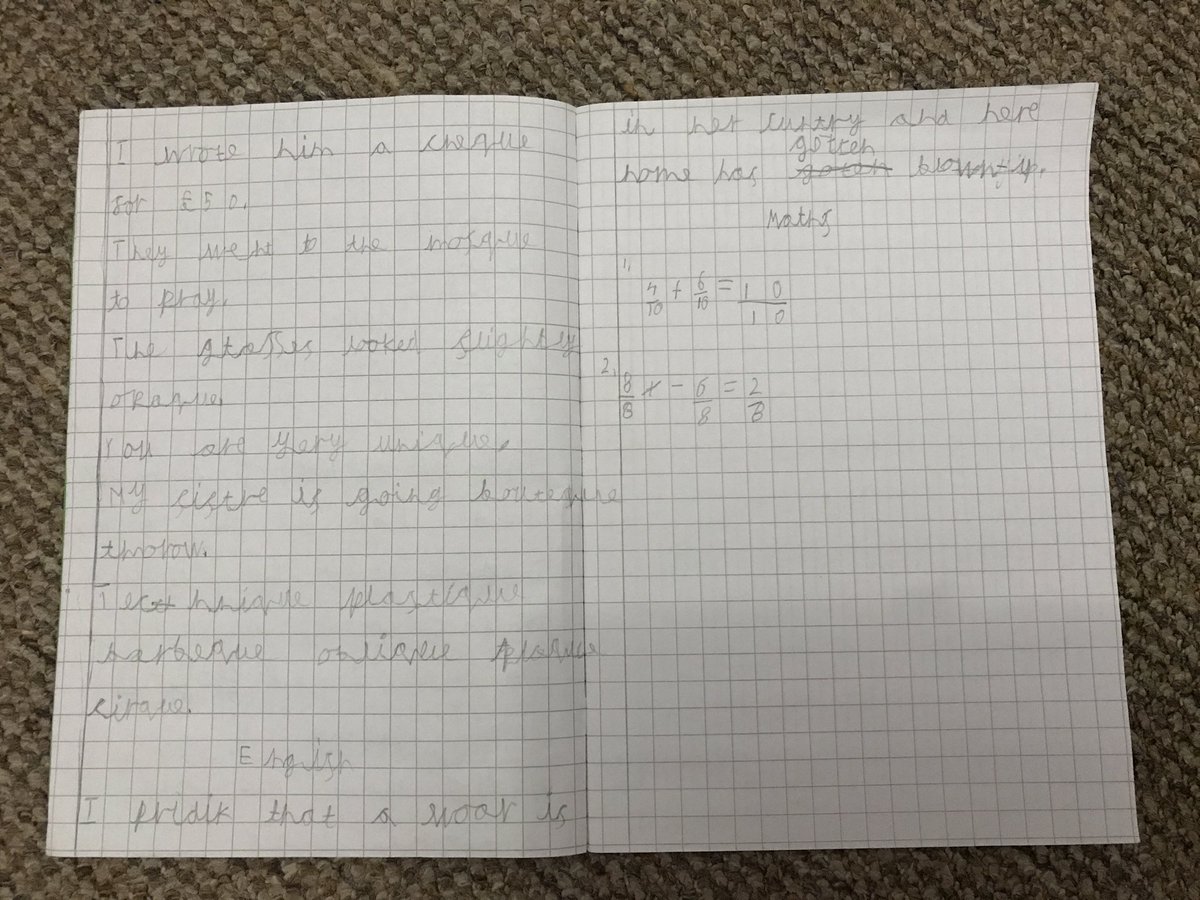 I wrote him a cheque
for £50.
They went to the mosque
to pray.
The glasses looked slightly
opaque.
You are very unique.
My sistre is going bouteque
tmorow.
Technnique plastique
barbeque oblique plaque
cirque.
English
I pridik that a woar is
in her cuntry and here
gotten
home has goten blown up.
Maths
1, 4/10 + 6/10 = 10/10
2, 8/8 - 6/8 = 2/8